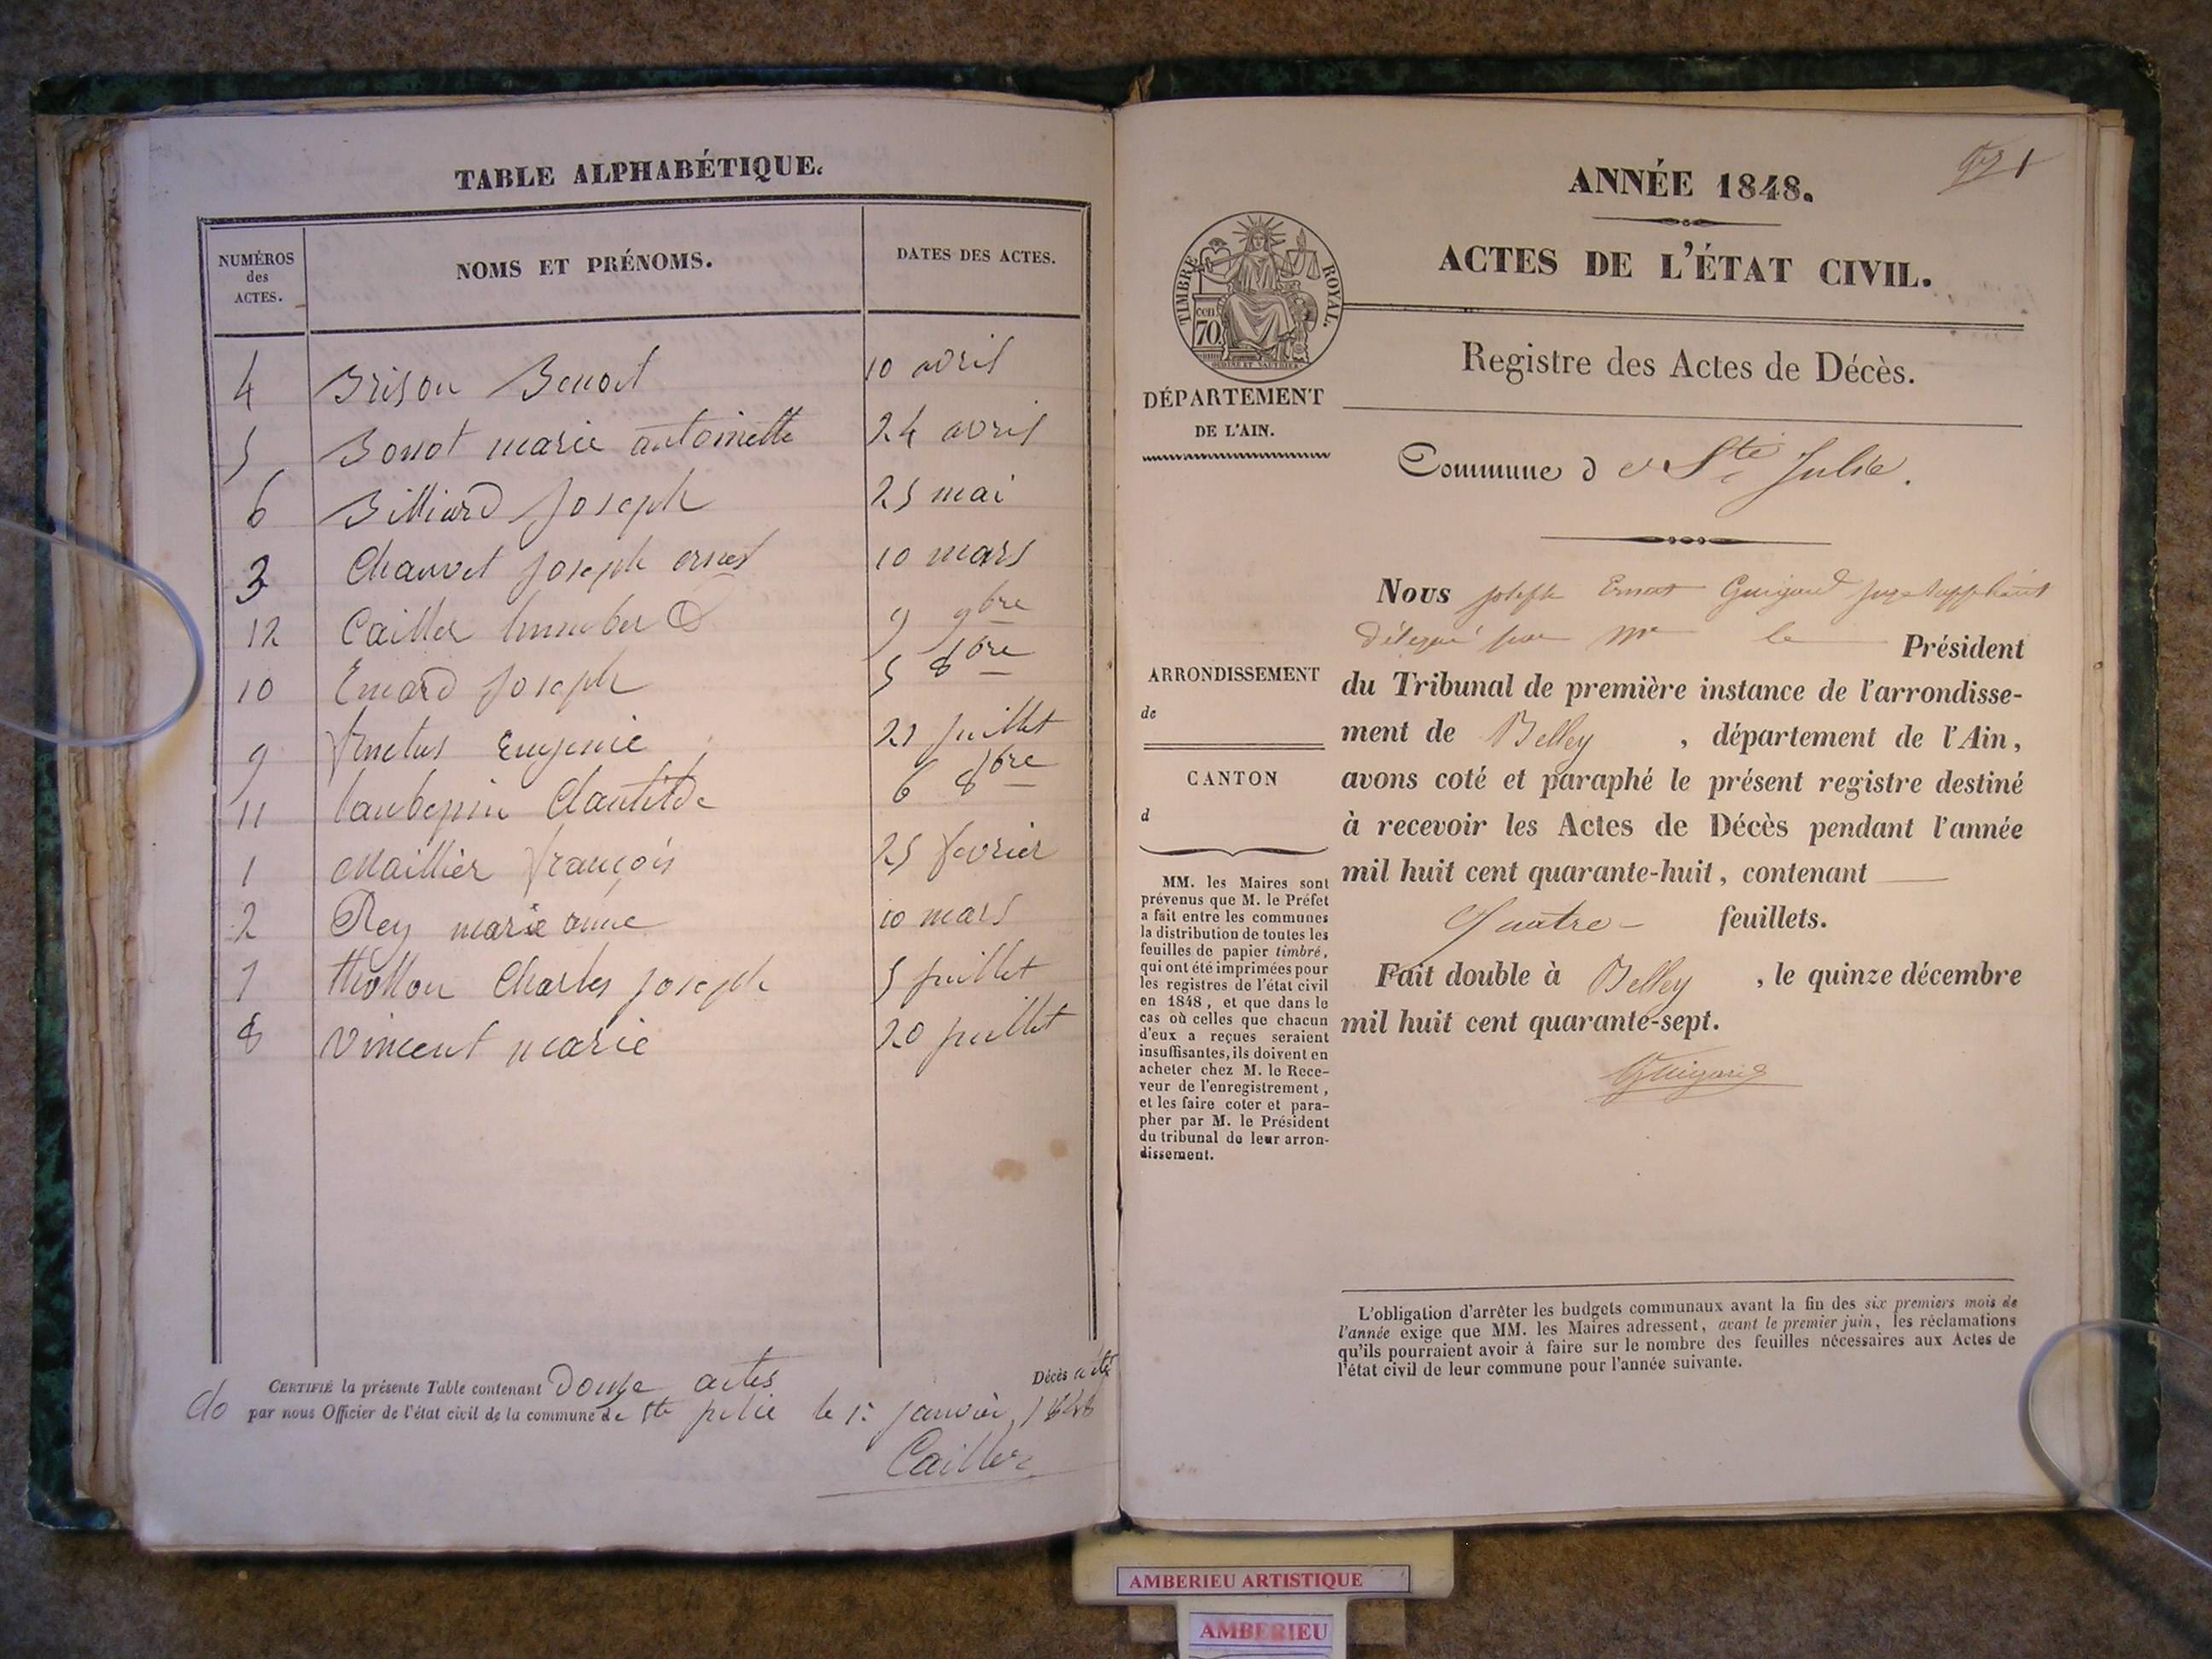 TABLE ALPHABÉTIQUE.
NUMÉROS
des
ACTES.
NOMS ET PRÉNOMS.
DATES DES ACTES.
4 Brison Benoit 10 avril
5 Bonot marie antoinette 24 avril
6 Billiard Joseph 25 mai
3 Chauvet Joseph ernest 10 mars
12 Cailler humbert 9 9bre
10 Emard Joseph 5 8bre
9 fructus Eugenie 21 juillet
11 laubepin Clautilde 6 8bre
1 Maillier françois 25 fevrier
2 Rey marie anne 10 mars
7 thollon Charles joseph 5 juillet
8 Vincent marie 20 juillet
CERTIFIÉ la présente Table contenant Douze actes Décès
par nous Officier de l'état civil de la commune de Ste julie le 1er janvier
Cailler
ANNÉE 1848.
ACTES DE L'ÉTAT CIVIL.
TIMBRE ROYAL.
cen
70.
Registre des Actes de Décès.
DÉPARTEMENT
DE L'AIN.
Commune de Ste Julie.
Nous joseph Ernest Guigard juge suppléant
délégué par Mr le Président
ARRONDISSEMENT
de
du Tribunal de première instance de l'arrondisse-
ment de Belley , département de l'Ain,
CANTON
d
avons coté et paraphé le présent registre destiné
à recevoir les Actes de Décès pendant l'année
mil huit cent quarante-huit, contenant
Quatre feuillets.
Fait double à Belley , le quinze décembre
mil huit cent quarante-sept.
Guigard
MM. les Maires sont
prévenus que M. le Préfet
a fait entre les communes
la distribution de toutes les
feuilles de papier timbré,
qui ont été imprimées pour
les registres de l'état civil
en 1848, et que dans le
cas où celles que chacun
d'eux a reçues seraient
insuffisantes, ils doivent en
acheter chez M. le Rece-
veur de l'enregistrement,
et les faire coter et para-
pher par M. le Président
du tribunal de leur arron-
dissement.
L'obligation d'arrêter les budgets communaux avant la fin des six premiers mois de
l'année exige que MM. les Maires adressent, avant le premier juin, les réclamations
qu'ils pourraient avoir à faire sur le nombre des feuilles nécessaires aux Actes de
l'état civil de leur commune pour l'année suivante.
AMBERIEU ARTISTIQUE
AMBERIEU